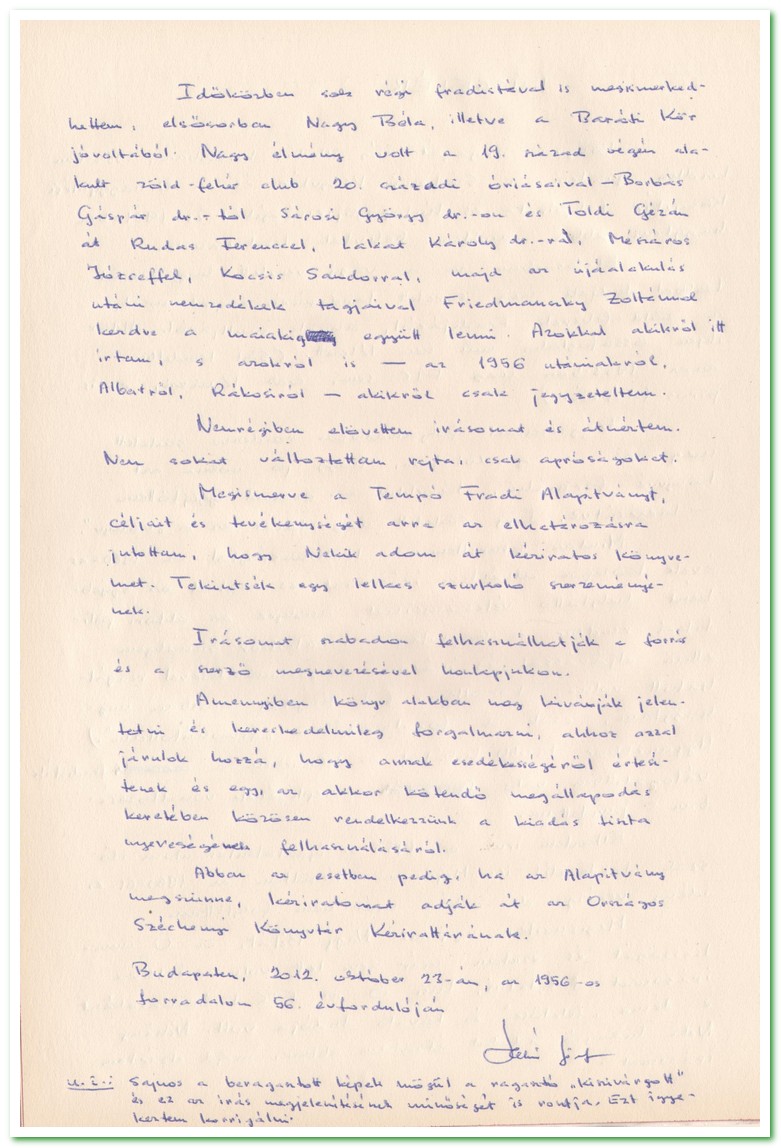 Időközben sok régi fradistával is megismerked-
hettem, elsősorban Nagy Béla, illetve a Baráti Kör
jóvoltából. Nagy élmény volt a 19. század végén ala-
kult zöld-fehér club 20. századi óriásaival – Borbás
Gáspár dr.-tól Sárosi György dr.-on és Toldi Gézán
át Rudas Ferenccel, Lakat Károly dr.-ral, Mészáros
Józseffel, Kocsis Sándorral, majd az újáalakulás
utáni nemzedékek tagjaival Friedmanszky Zoltánnal
kezdve a maiakig együtt lenni. Azokkal akikről itt
írtam, s azokról is — az 1956 utániakról,
Albertről, Rákosiról – akikről csak jegyzeteltem.
Nemrégiben elővettem írásomat és átnéztem.
Nem sokat változtattam rajta, csak apróságokat.
Megismerve a Tempó Fradi Alapítványt,
céljait és tevékenységét arra az elhatározásra
jutottam, hogy Nekik adom át kéziratos könyve-
met. Tekintsék egy lelkes szurkoló szerzeményé-
nek.
Írásomat szabadon felhasználhatják a forrás
és a szerző megnevezésével honlapjukon.
Amennyiben könyv alakban meg kívánják jelen-
tetni és kereskedelmileg forgalmazni, ahhoz azzal
járulok hozzá, hogy annak esedékességéről értesí-
tenek és egy, az akkor kötendő megállapodás
keretében közösen rendelkezzünk a kiadás tiszta
nyereségének felhasználásáról.
Abban az esetben pedig, ha az Alapítvány
megszünne, kéziratomat adják át az Országos
Széchenyi Könyvtár Kézirattárának.
Budapesten, 2012. október 23-án, az 1956-os
forradalom 56. évfordulóján
u.i.: Sajnos a beragasztott képek mögül a ragasztó „kiszivárgott"
és ez az írás megjelenítésének minőségét is rontja. Ezt igye-
keztem korrigálni.